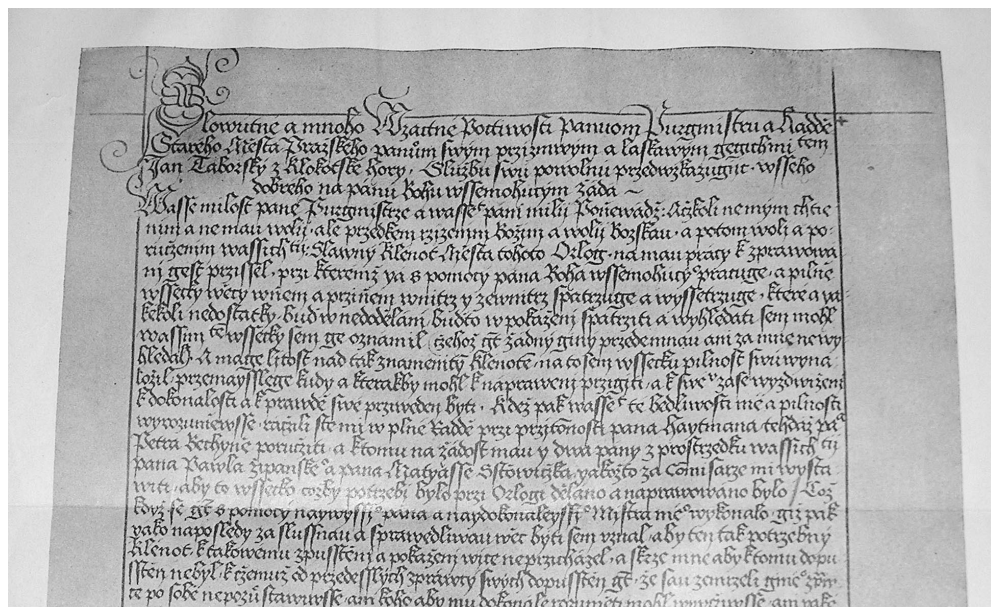 Slowutne a mnoho Wzactne Poctiwosti Panuom Purgmistru a Radde
Stareho Miesta Prazskeho panům swym przizniwym a laskawym gegichmi tem
Jan Taborsky z Klokotske Hory, Sluzbu swu powolnu przedwzkazugicz. wsseho
dobreho na panu Bohu wssemohutym zada ~
Wasse milost pane Purgmistrze a wasse pani milij Poňewadž. Aczkoli nemym chtie
nim a ne mau wolij, ale przedkem rzizenim Božim a wolij Bozskau, a potom woli a po-
ruczenim wassich tij. Slawny Klenot Miesta tohoto Orlog, na mau pracy k zprawowa
ni gest przissel, przi kteremz ya s pomocy pana Boha wssemohucyº pracuge, a pilne
wssecky wěcy wňem a przi ňem wnitrz y zewnitrz spatrzuge a wyssetrzuge, ktere a ya-
kekoli nedostatky, bud w nedodělani, budto w pokaženi spatrziti a wyhledati sem mohl
wassim tem wssecky sem ge oznamil, czehoz gt žadny giny przedemnau ani za mne nowy
hledal. A mage litost nad tak znamenity klenote, na to sem wssecku pilnost swu wyna
ložil, przemaysslege kudy a kterakby mohl k naprawení przigiti, a k sweº zase wyzdwiženi
k dokonalosti a k prawdě swe przuweden byti. Kdež pak wasse te bedliwosti me a pilnosti
wyrozumiewsse, raczili ste mi w plne Raddě przi przitomnosti pana Haytmana tehdáž paº
Petra Bechyně poruziti, a ktomu na žádost mau y dwa pany z prostrzedku wassich tij
pana Pawla Zipanskeº a pana Matyásse Ostowiczka, yakožto za Comisarze mi wysta
witi, aby to wssecko cozby potrzebi bylo przi Orlogi dělano a naprawowano bylo / Což
když se gt s pomocy naywyssiº pana a naydokonaleyssiº Mistra meº wykonalo, giž pak
yako naposledy za slussnau a sprawedliwau wec byti sem uznal, aby ten tak potrzebny
klenot, k takowemu zpusstění a pokažení wice neprzicházel, a skrze mne aby ktomu dopu
sstěn nebyl, k czemuž od przedesslych zpráwcy swych dopusstěn gt, že sau zemrzeli gineº
te po sobě nepozůstawiwsse, ani koho aby mu dokonale rozuměti mohl